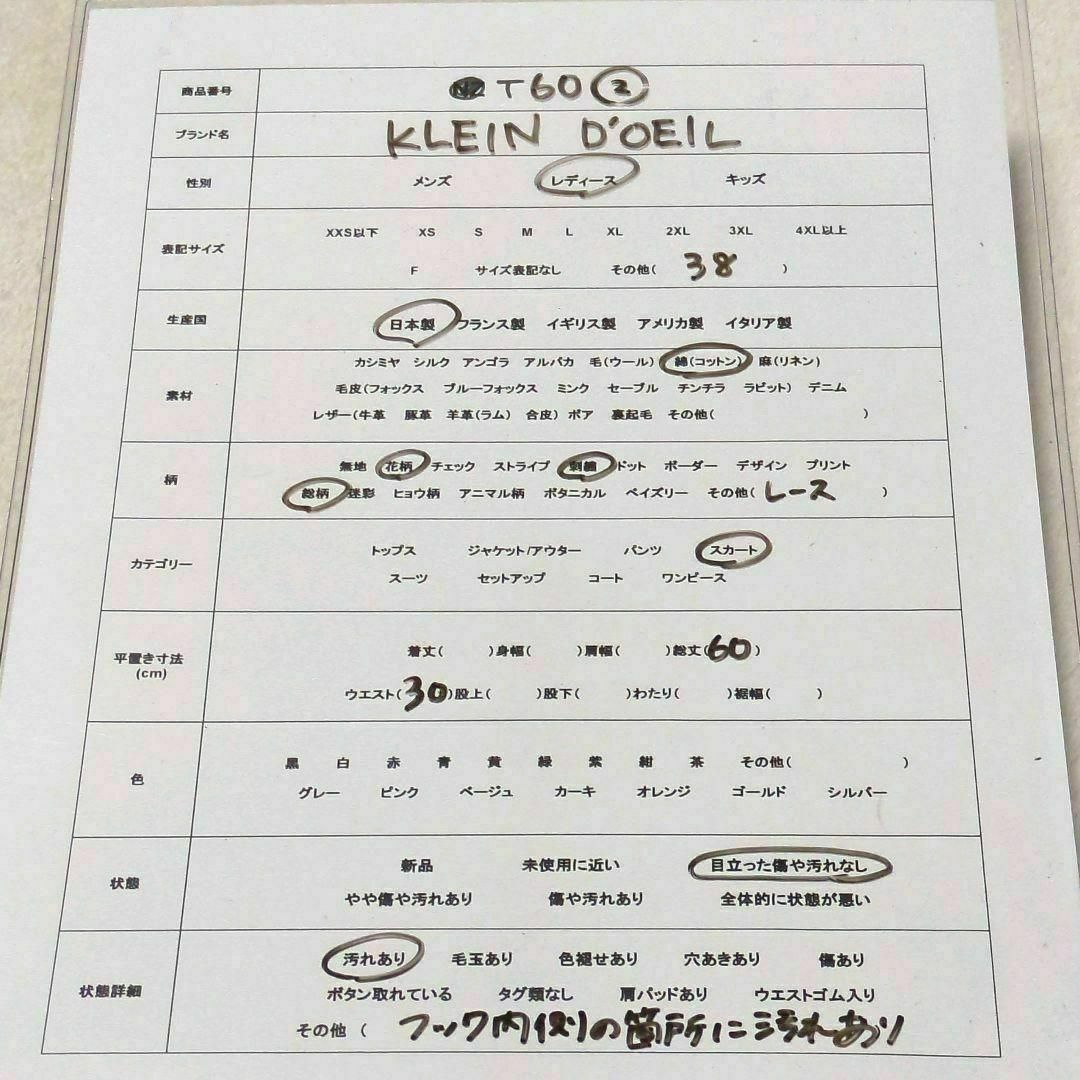 商品番号 T60 ②
ブランド名 KLEIN D'OEIL
性別 メンズ レディース キッズ
表記サイズ XXS以下 XS S M L XL 2XL 3XL 4XL以上
F サイズ表記なし その他( 38 )
生産国 日本製 フランス製 イギリス製 アメリカ製 イタリア製
素材 カシミヤ シルク アンゴラ アルパカ 毛(ウール) 綿(コットン) 麻(リネン)
毛皮(フォックス ブルーフォックス ミンク セーブル チンチラ ラビット) デニム
レザー(牛革 豚革 羊革(ラム) 合皮) ボア 裏起毛 その他( )
柄 無地 花柄 チェック ストライプ 刺繍 ドット ボーダー デザイン プリント
総柄 迷彩 ヒョウ柄 アニマル柄 ボタニカル ペイズリー その他( レース )
カテゴリー トップス ジャケット/アウター パンツ スカート
スーツ セットアップ コート ワンピース
平置き寸法 着丈( )身幅( )肩幅( )総丈( 60 )
(cm) ウエスト( 30 )股上( )股下( )わたり( )裾幅( )
色 黒 白 赤 青 黄 緑 紫 紺 茶 その他( )
グレー ピンク ベージュ カーキ オレンジ ゴールド シルバー
状態 新品 未使用に近い 目立った傷や汚れなし
やや傷や汚れあり 傷や汚れあり 全体的に状態が悪い
状態詳細 汚れあり 毛玉あり 色褪せあり 穴あきあり 傷あり
ボタン取れている タグ類なし 肩パッドあり ウエストゴム入り
その他 ( フック内側の箇所に汚れあり